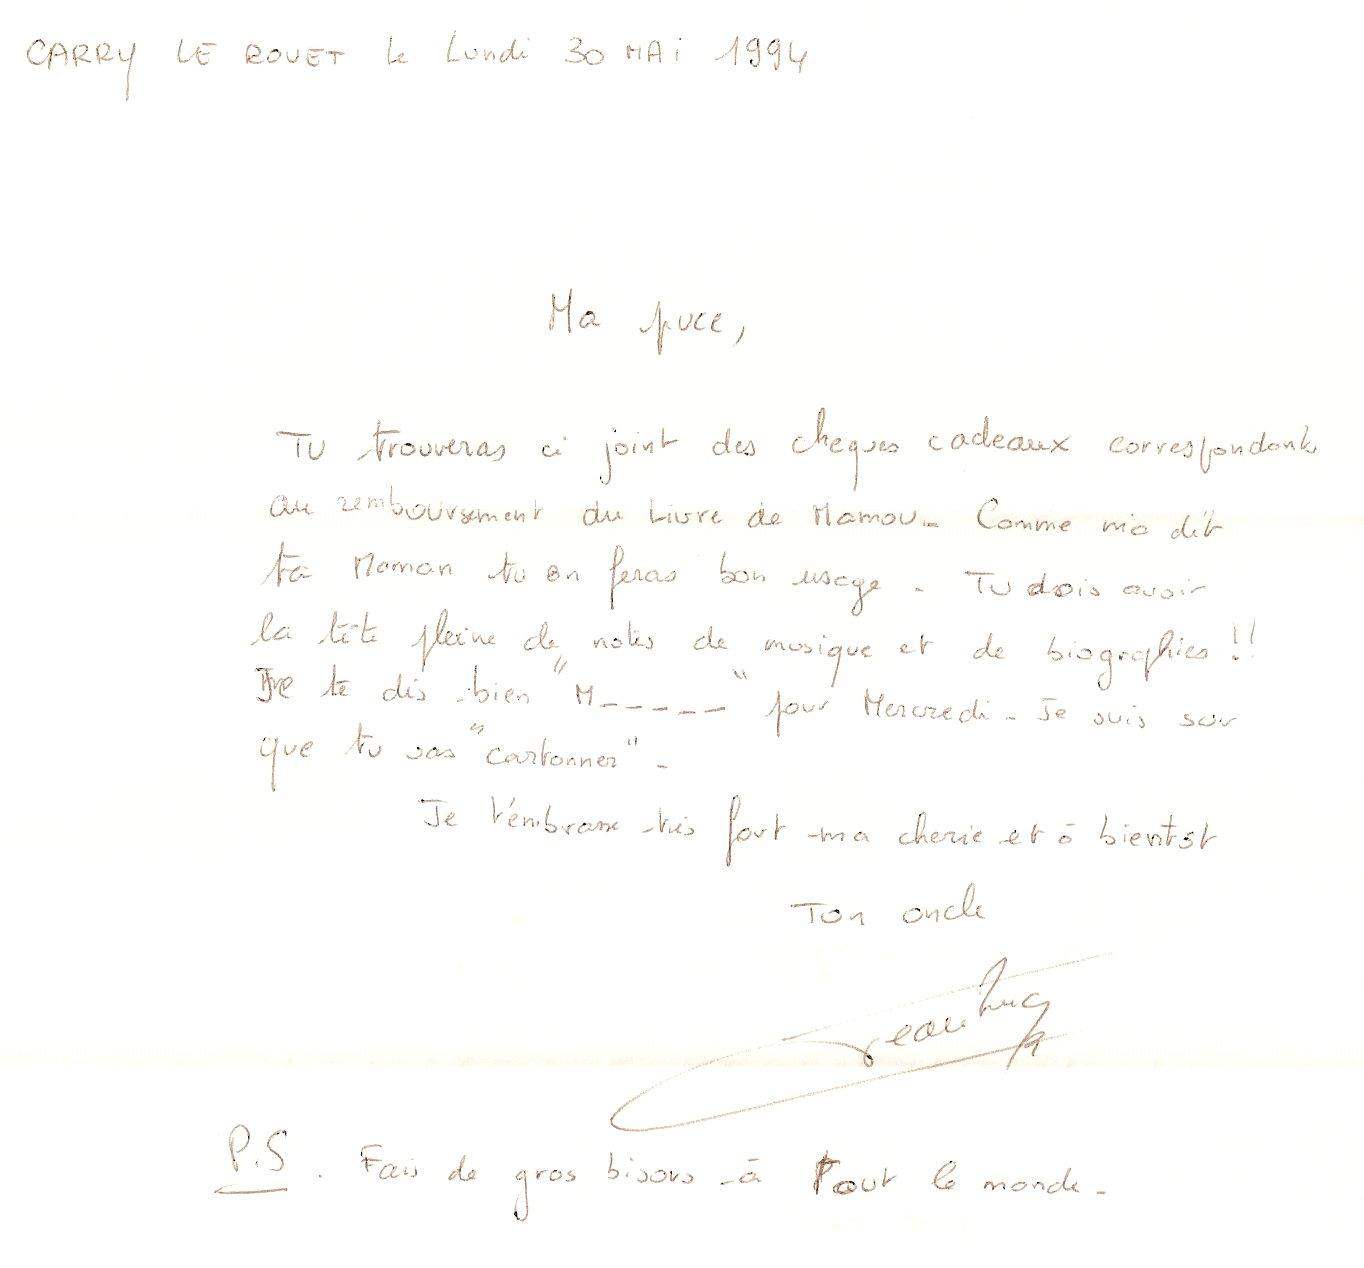 CARRY LE ROUET le Lundi 30 MAi 1994
Ma puce,
Tu trouveras ci joint des cheques cadeaux correspondants
au remboursement du Livre de Mamou_ Comme m'a dit
ta Maman tu en feras bon usage. Tu dois avoir
la tête pleine de notes de musique et de biographies !!
Je te dis bien "M_____" pour Mercredi_ Je suis sur
que tu vas "cartonner"_
Je t'embrasse très fort ma cherie et à bientot
Ton oncle
Jean Luc
P.S. Fais de gros bisous à Tout le monde_